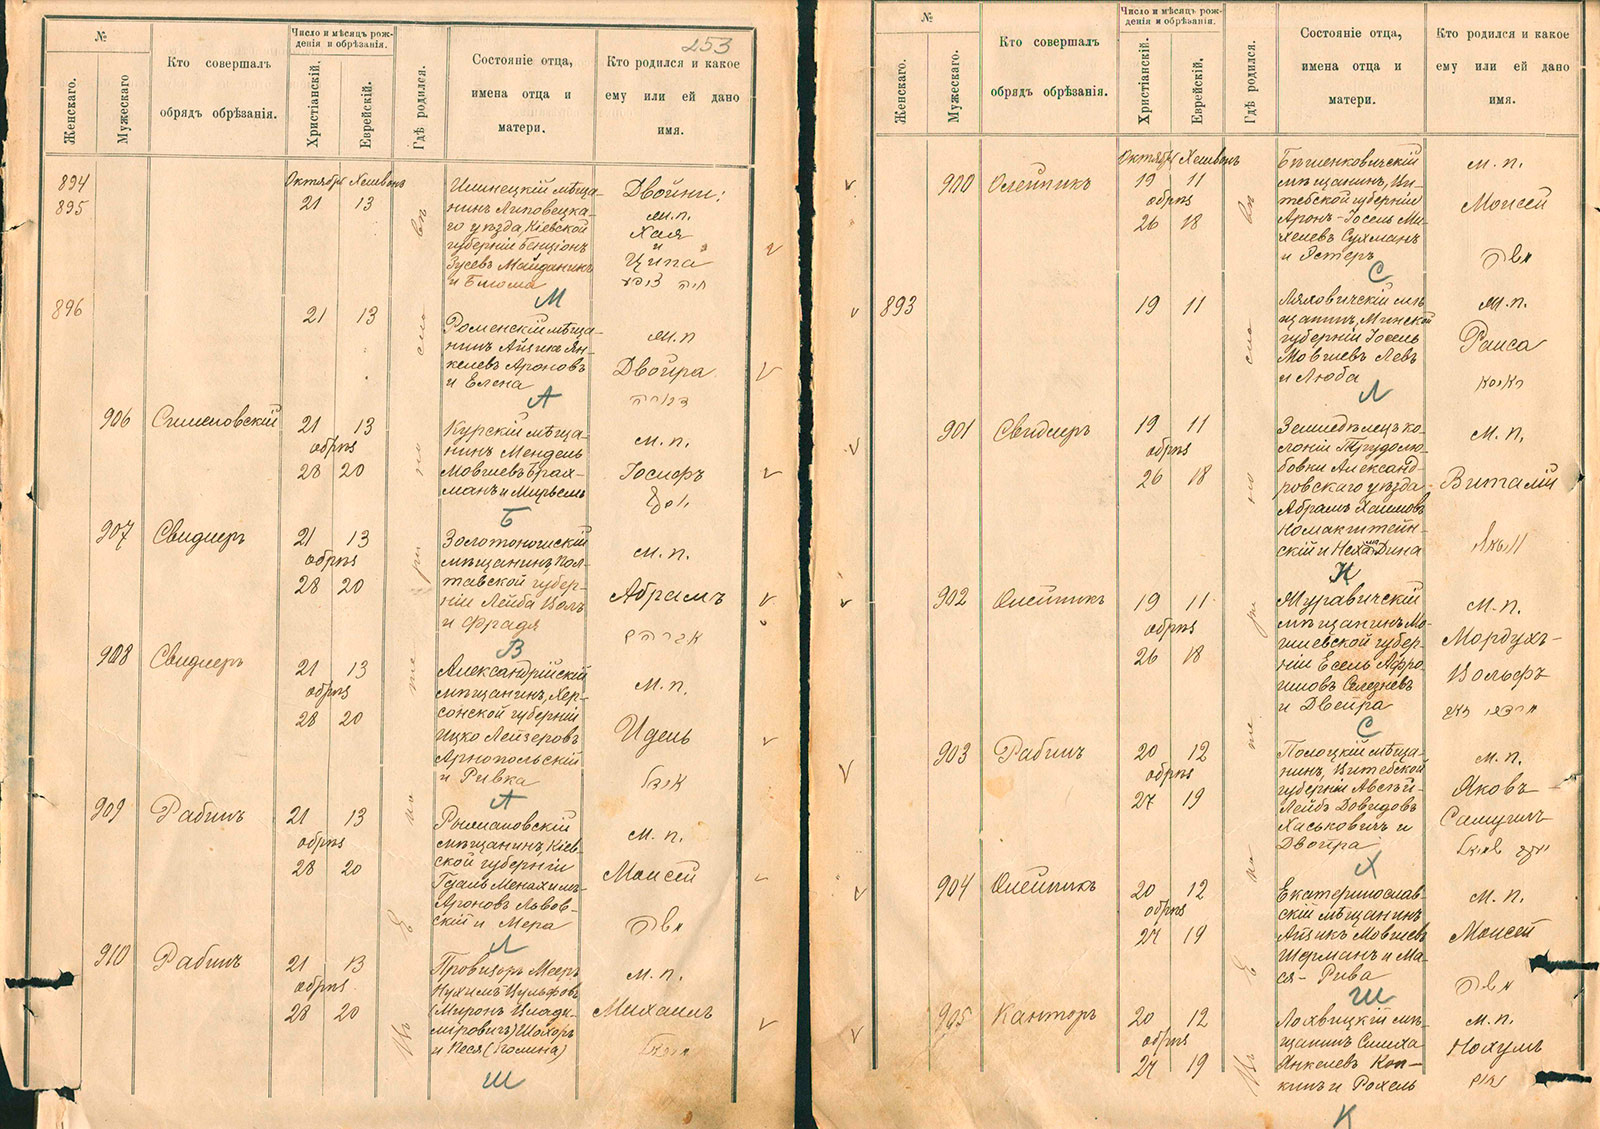 253
№
Женскаго.
Мужескаго
Кто совершалъ
обрядъ обрѣзанія.
Число и мѣсяцъ рож-
денія и обрѣзанія.
Христіанскій.
Еврейскій.
Гдѣ родился.
Состояніе отца,
имена отца и
матери.
Кто родился и какое
ему или ей дано
имя.
894
895
Октябрь Хешванъ
21 13
Илинецкій мѣща-
нинъ Липовецка-
го уѣзда, Кіевской
губерніи Бенціонъ
Зусевъ Майданикъ
и Блюма
М
Двойни:
м. п.
Хая
и
Ципа
חיה ציפע
896
21 13
Роменскій мѣща-
нинъ Айзикъ Ян-
келевъ Ароновъ
и Елена
А
м. п
Двойра
906
21 13
обрѣз
28 20
Курскій мѣща-
нинъ Мендель
Мовшевъ Брах-
манъ и Мирьемъ
Б
м. п.
Іосифъ
יוסף
907
Свидлеръ
21 13
обрѣз
28 20
Золотоношскій
мѣщанинъ, Пол-
тавской губер-
ніи Лейба Волъ
и Фрадя
В
м. п.
Абрамъ
אברהם
908
Свидлеръ
21 13
обрѣз
28 20
Александрійскій
мѣщанинъ, Хер-
сонской губерніи
Ицко Лейзеровъ
Арнопольскій
и Ривка
А
м. п.
Идель
909
Рабинъ
21 13
обрѣз
28 20
мѣщанинъ, Кіев-
ской губерніи
Менахимъ-
Ароновъ Львов-
скій и Мера
Л
м. п.
Моисей
משה
910
Рабинъ
21 13
обрѣз
28 20
Провизоръ Мееръ
Нухимъ Вульфовъ
(Миронъ Влади-
міровичъ) Шахоръ
и Песя (Полина)
Ш
м. п.
Михаилъ
Въ Екатеринославѣ
№
Женскаго.
Мужескаго.
Кто совершалъ
обрядъ обрѣзанія.
Число и мѣсяцъ рож-
денія и обрѣзанія.
Христіанскій.
Еврейскій.
Гдѣ родился.
Состояніе отца,
имена отца и
матери.
Кто родился и какое
ему или ей дано
имя.
900
Олейникъ
Октябрь Хешванъ
19 11
обрѣз
26 18
Бѣшенковичскій
мѣщанинъ, Ви-
тебской губерніи
Аронъ-Іосель Ми-
хелевъ Сухманъ
и Эстеръ
С
м. п.
Моисей
משה
893
19 11
Ляховичскій мѣ-
щанинъ, Минской
губерніи Іосель
Мовшевъ Левъ
и Люба
Л
м. п.
Раиса
901
Свидлеръ
19 11
обрѣз
26 18
Земледѣлецъ ко-
лоніи Трудолю-
бовки Александ-
ровскаго уѣзда
Абрамъ Хаимовъ
скій и Нехама Дина
м. п.
Виталій
902
Олейникъ
19 11
обрѣз
26 18
Журавичскій
мѣщанинъ Мо-
гилевской губер-
ніи Есель Афро-
имовъ Селезневъ
и Двейра
С
м. п.
Мордухъ-
Вольфъ
903
Рабинъ
20 12
обрѣз
27 19
Полоцкій мѣща-
нинъ, Витебской
губерніи Авсѣй-
Лейбъ Довидовъ
Хаськовичъ и
Двойра
Х
м. п.
Яковъ
Самуилъ
904
Олейникъ
20 12
обрѣз
27 19
Екатеринослав-
скій мѣщанинъ
Айзикъ Мовшевъ
Шерманъ и Ма-
ся-Рива
Ш
м. п.
Моисей
משה
905
Канторъ
20 12
обрѣз
27 19
Лохвицкій мѣ-
щанинъ Симха
Янкелевъ Коп-
кинъ и Рохель
К
м. п.
Нохумъ
נחום
Въ Екатеринославѣ